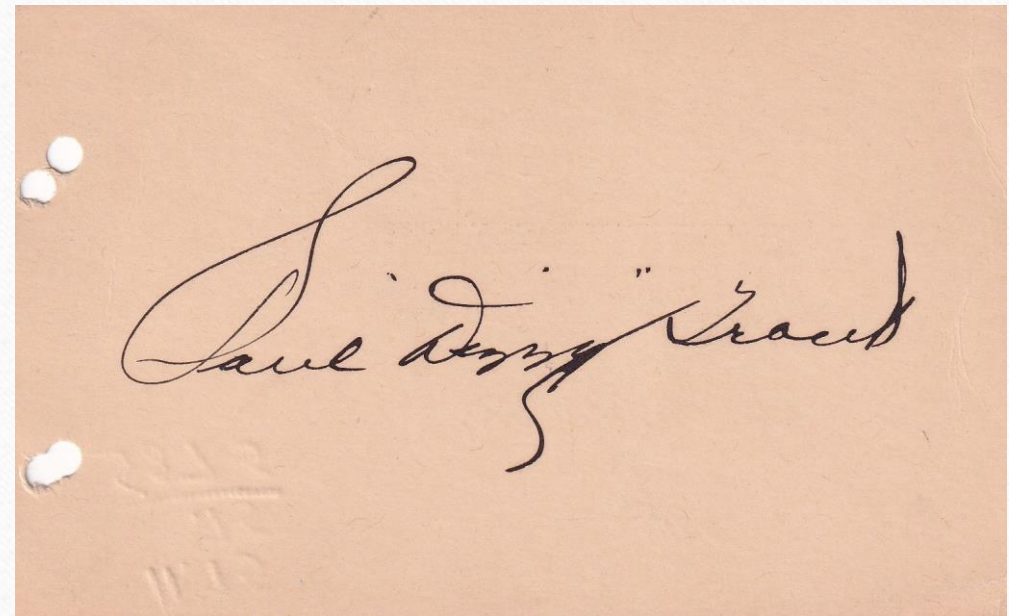 Paul "Dizzy" Trout